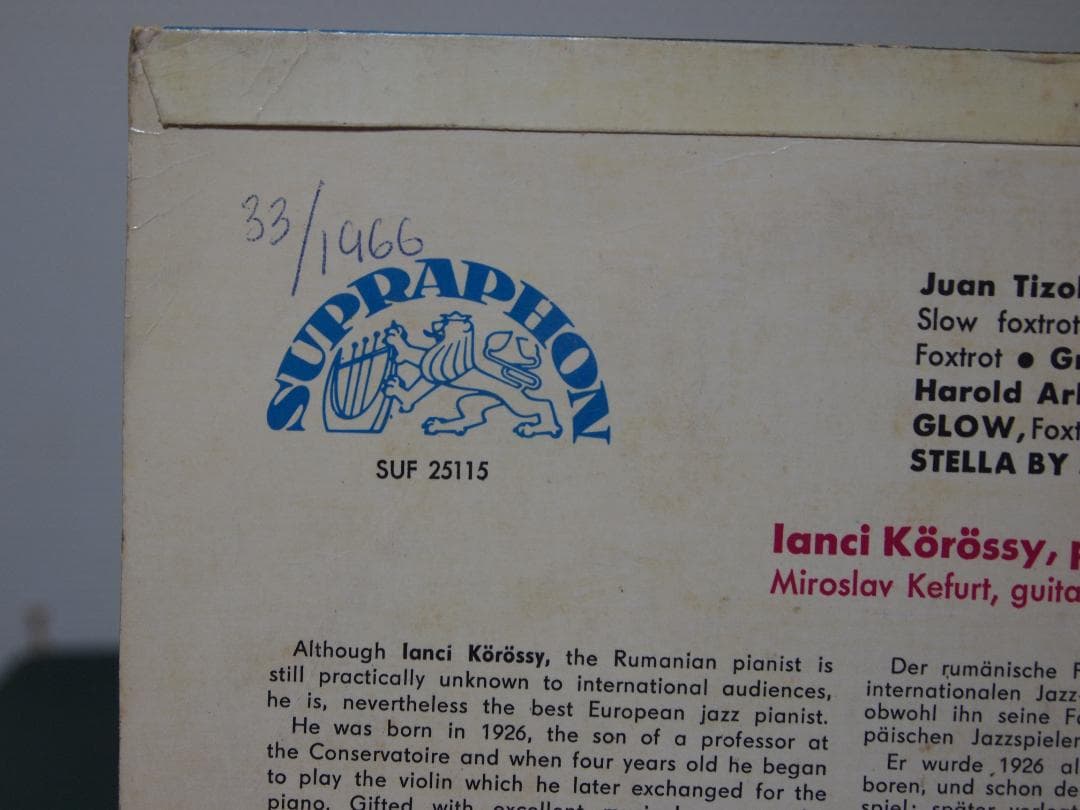 33/1966
SUPRAPHON
SUF 25115
Juan
Slow foxtrot
Foxtrot ●
Harold
GLOW,
STELLA BY
Ianci Körössy,
Miroslav Kefurt,
Although Ianci Körössy, the Rumanian pianist is
still practically unknown to international audiences,
he is, nevertheless the best European jazz pianist.
He was born in 1926, the son of a professor at
the Conservatoire and when four years old he began
to play the violin which he later exchanged for the
piano. Gifted with excellent
Der rumänische
internationalen
obwohl ihn seine
päischen Jazzspieler
Er wurde 1926
boren, und schon